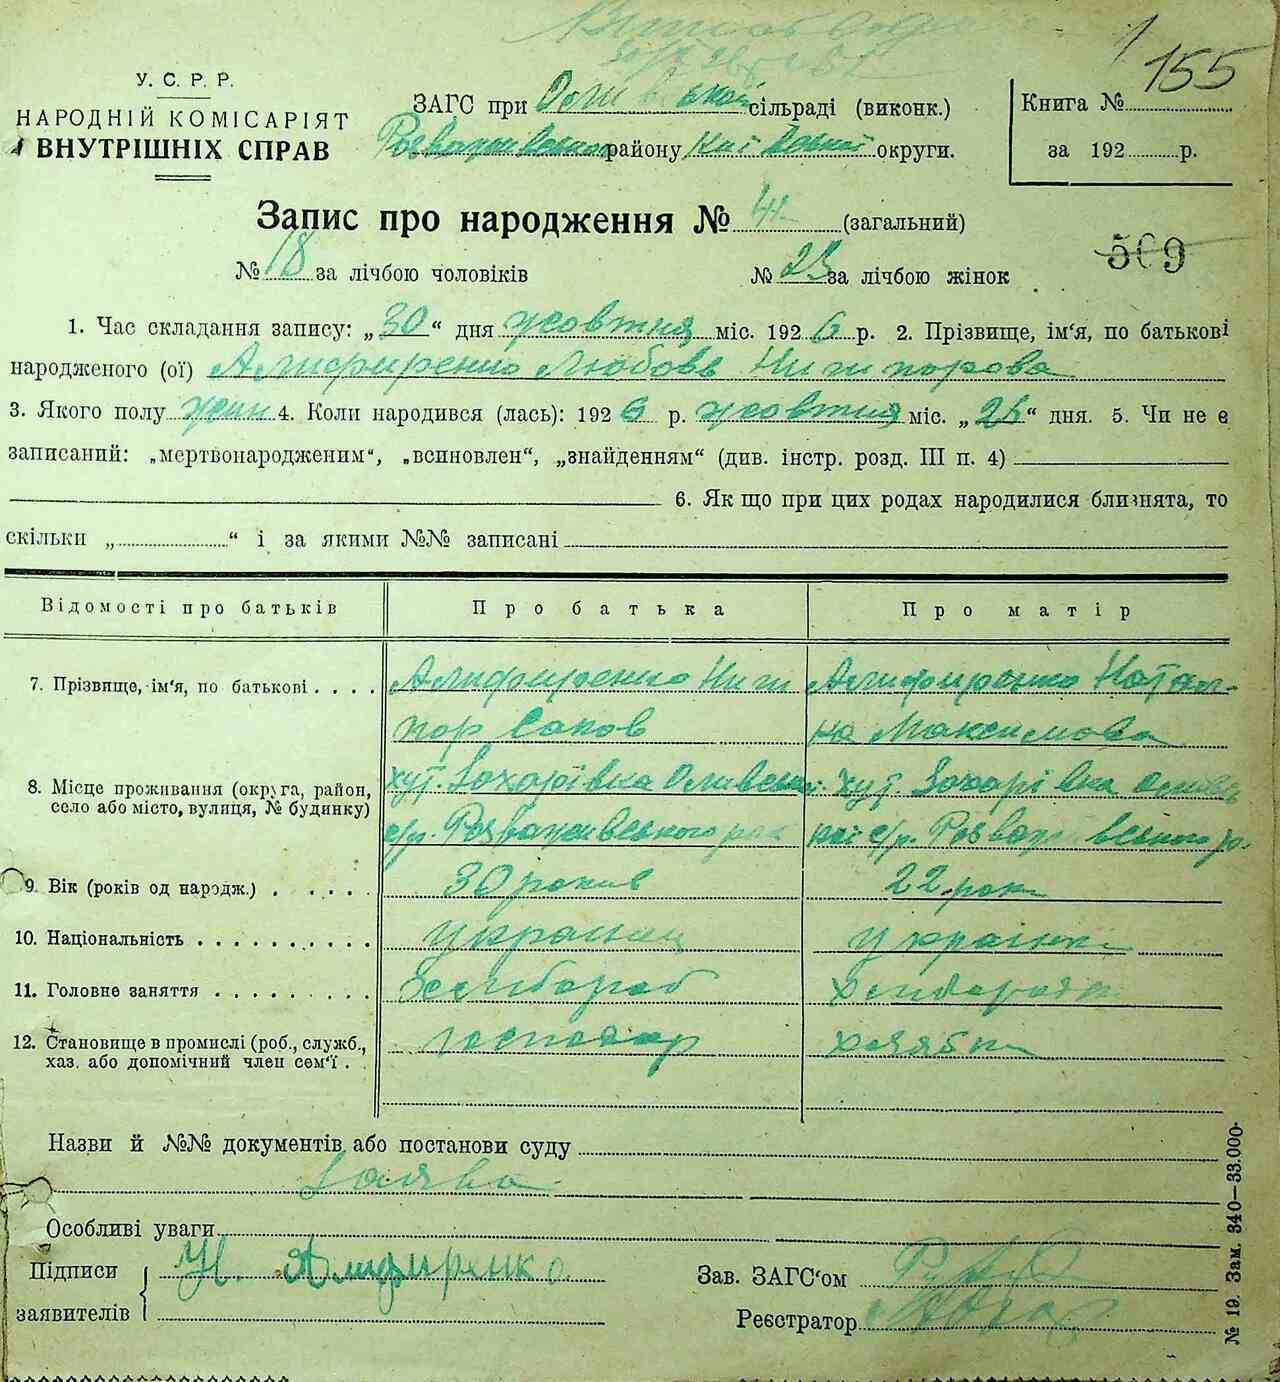 155
У. С. Р. Р.
НАРОДНІЙ КОМІСАРІЯТ
ВНУТРІШНІХ СПРАВ
ЗАГС при сільраді (виконк.)
Розважевського району Київської округи.
Книга №
за 192 р.
Запис про народження № 41 (загальний)
№ 18 за лічбою чоловіків № 23 за лічбою жінок
509
1. Час складання запису: „30“ дня жовтня міс. 1926 р. 2. Прізвище, ім‘я, по батькові
народженого (ої) Алифиренко Любовь Ничипорова
3. Якого полу жін 4. Коли народився (лась): 1926 р. жовтня міс. „28“ дня. 5. Чи не є
записаний: „мертвонародженим“, „всиновлен“, „знайденням“ (див. інстр. розд. III п. 4)
6. Як що при цих родах народилися близнята, то
скільки „ “ і за якими №№ записані
Відомості про батьків Про батька Про матір
7. Прізвище, ім‘я, по батькові . . . . Алифиренко Ничи Алифиренко Натал-
пор Саков ка Максимова
8. Місце проживання (округа, район, хут. Захарівка хут. Захарівка
село або місто, вулиця, № будинку) с/р. Розважевського рай с/р. Розважевського р.
9. Вік (років од народж.) . . . . . 30 років 22 рок
10. Національність . . . . . . . . . . українець українка
11. Головне заняття . . . . . . . . . Хлібороб Хліборобка
12. Становище в промислі (роб., служб., господар хазяйка
хаз. або допомічний член сем‘ї . .
Назви й №№ документів або постанови суду
Заява
Особливі уваги
Підписи Н. Алифиренко. Зав. ЗАГС‘ом
заявителів Реєстратор
№ 19. Зам. 340—33.000.